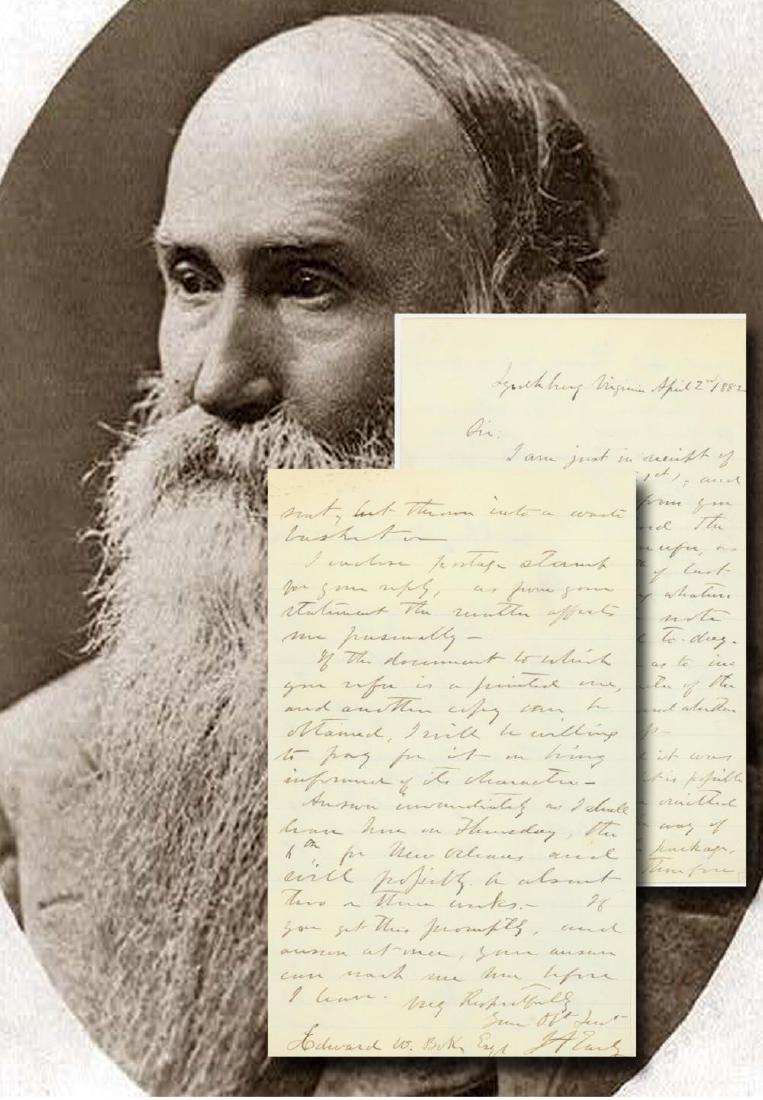 Lynchburg Virginia April 2nd 1882
Sir:
I am just in receipt of
1st, and
from you
and the
refer, as
of last
whatever
note
to-day.
as to
of the
and whether
it was
it is possible
omitted
way of
package,
therefore
sent, but thrown into a waste
basket
I enclose postage stamp
for your reply, as from your
statement the matter affects
me personally —
If the document to which
you refer is a printed one,
and another copy can be
obtained, I will be willing
to pay for it on being
informed of its character —
Answer immediately as I shall
leave here on Thursday, the
6th for New Orleans and
will possibly be absent
two or three weeks. — If
you get this promptly, and
answer at once, your answer
can reach me here before
I leave.
Very Respectfully
Your Obt Servt
Edward W. Bok, Esqr J A Early